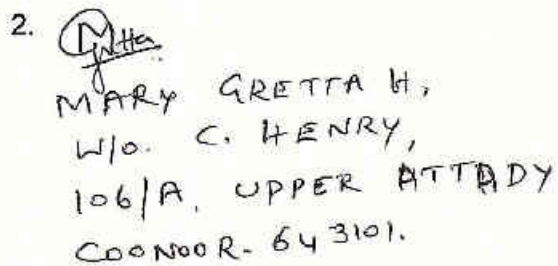 2.
MARY GRETTA H,
W/o. C. HENRY,
106/A, UPPER ATTADY
COONOOR- 643101.